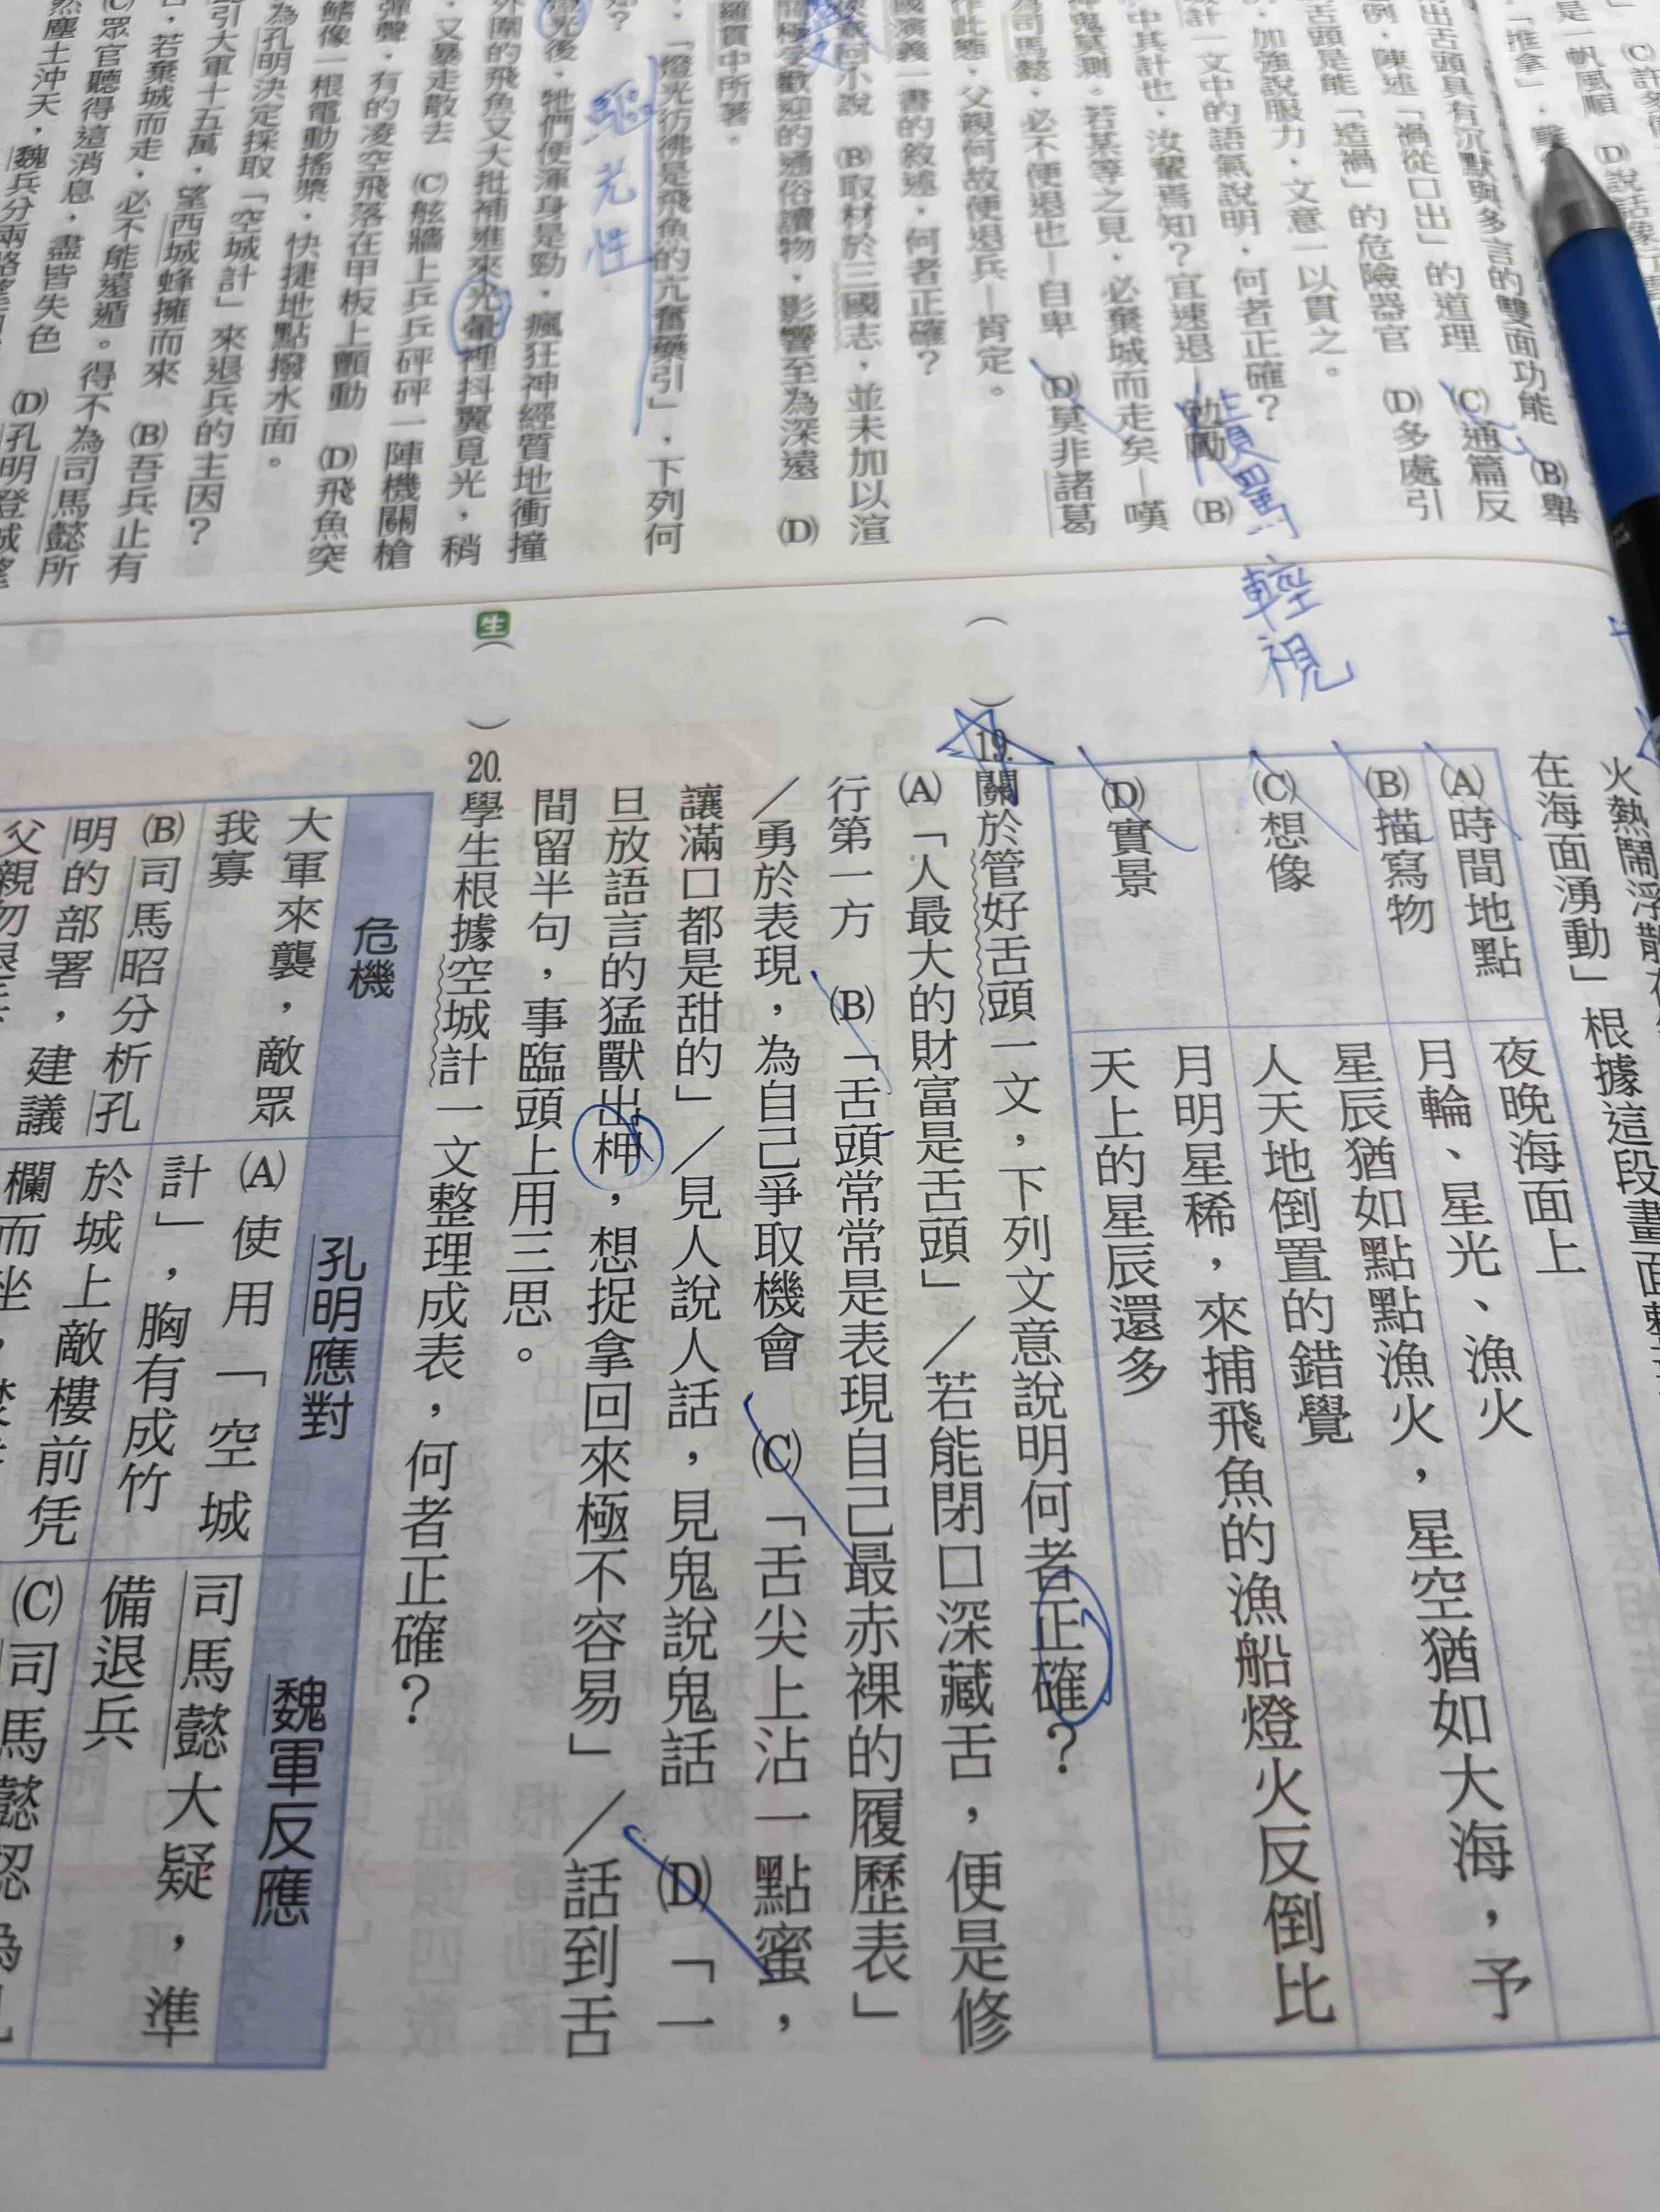 」 (C)許多
是一帆風順 (D)說話
「推拿」,
出舌頭具有沉默與多言的雙面功能 (B)舉
例,陳述「禍從口出」的道理 (C)通篇反
舌頭是能「造禍」的危險器官 (D)多處引
,加強說服力,文意一以貫之。
計一文中的語氣說明,何者正確?
中其計也,汝輩焉知?宜速退— (B)
神鬼莫測。若某等之見,必棄城而走矣—嘆
為司馬懿,必不便退也—自卑 (D)莫非諸葛
作此態,父親何故便退兵—肯定。
國演義一書的敘述,何者正確?
章回小說 (B)取材於三國志,並未加以渲
歡迎的通俗讀物,影響至為深遠 (D)
羅貫中所著。
,「燈光彷彿是飛魚的亢奮藥引」,下列何
?
光後,牠們便渾身是勁,瘋狂神經質地衝撞
外圍的飛魚又大批補進來光暈裡抖翼覓光,稍
,又暴走散去 (C)舷牆上乒乒砰砰一陣機關槍
彈聲,有的凌空飛落在甲板上顫動 (D)飛魚突
鰭像一根電動搖槳,快捷地點撥水面。
為孔明決定採取「空城計」來退兵的主因?
引大軍十五萬,望西城蜂擁而來 (B)吾兵止有
,若棄城而走,必不能遠遁。得不為司馬懿所
(C)眾官聽得這消息,盡皆失色 (D)孔明登城望
然塵土沖天,魏兵分兩路
責罵
輕視
驅光性
火熱鬧浮散在
在海面湧動」根據這段畫面
(A)時間地點
夜晚海面上
(B)描寫物
月輪、星光、漁火
(C)想像
星辰猶如點點漁火,星空猶如大海,予
人天地倒置的錯覺
(D)實景
月明星稀,來捕飛魚的漁船燈火反倒比
天上的星辰還多
( )19.關於管好舌頭一文,下列文意說明何者正確?
(A)「人最大的財富是舌頭」/若能閉口深藏舌,便是修
行第一方 (B)「舌頭常常是表現自己最赤裸的履歷表」
/勇於表現,為自己爭取機會 (C)「舌尖上沾一點蜜,
讓滿口都是甜的」/見人說人話,見鬼說鬼話 (D)「一
旦放語言的猛獸出柙,想捉拿回來極不容易」/話到舌
間留半句,事臨頭上用三思。
生( )20.學生根據空城計一文整理成表,何者正確?
危機
孔明應對
魏軍反應
大軍來襲,敵眾
我寡
(A)使用「空城
計」,胸有成竹
司馬懿大疑,準
備退兵
(B)司馬昭分析孔
明的部署,建議
父親勿
於城上敵樓前凭
欄而坐,
(C)司馬懿認為孔